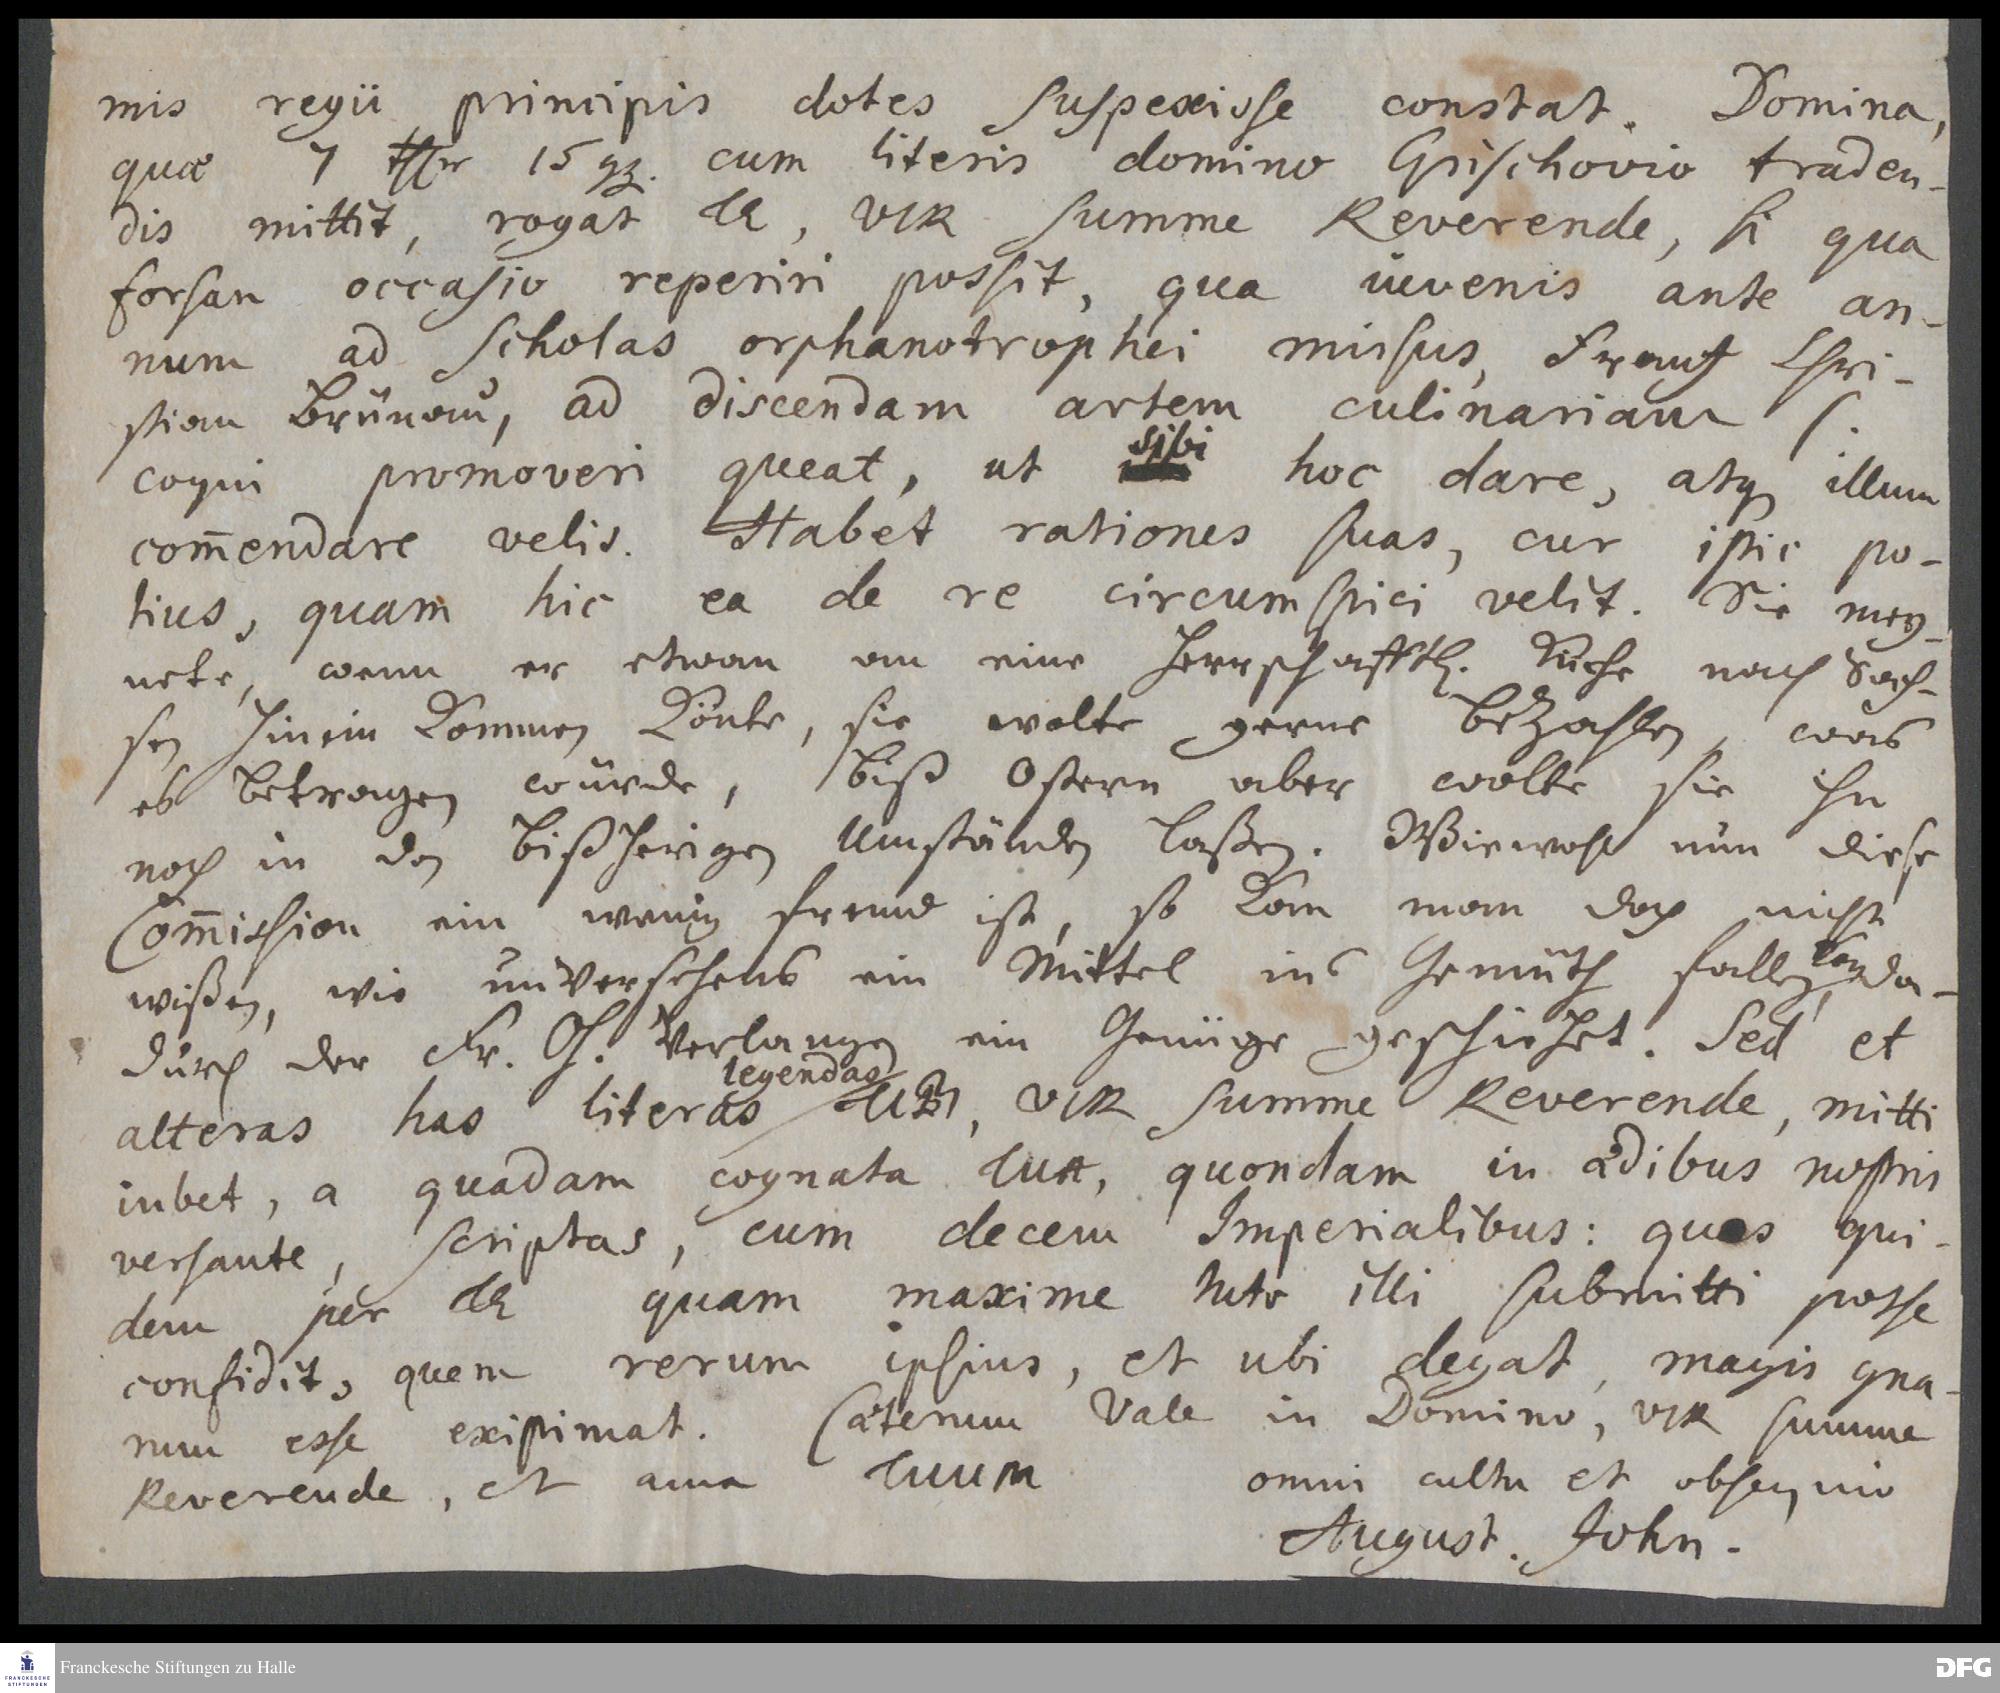 mis regii principis dotes suspexisse constat. Domina,
quæ 7 thlr 15 gg. cum literis domino Grischovio traden-
dis mittit, rogat TE, VIR summe Reverende, si qua
forsan occasio reperiri possit, qua iuvenis ante an-
num ad scholas orphanotrophei missus, Frantz Chri-
stian Brünow, ad discendam artem culinariam s.
coqui promoveri queat, ut sibi hoc dare, atq illum
com̅endare velis. Habet rationes suas, cur istic po-
tius, quam hic ea de re circumspici velit. Sie mey-
nete, wenn er etwan an eine Herrschafftl. Küche nach Sach-
sen hinein kommen könte, sie wolte gerne bezahlen, was
es betragen würde, biß Ostern aber wolte sie ihn
noch in den bißherigen Umständen laßen. Wiewohl nun diese
Com̅ission ein wenig fremd ist, so kan man doch nicht
wißen, wie unversehens ein Mittel ins Gemüth fallen kan, da-
durch der Fr. G. Verlangen ein Genüge geschiehet. Sed et
alteras has literas legendas TIBI, VIR summe Reverende, mitti
iubet, a quadam cognata TUA, quondam in ædibus nostris
versante, scriptas, cum decem Imperialibus: quos qui-
dem per TE quam maxime tuto illi submitti posse
confidit, quem rerum ipsius, et ubi degat, magis gna-
rum esse existimat. Cæterum Vale in Domino, VIR summe
Reverende, et ama TUUM omni cultu et obsequio
August. John.
Franckesche Stiftungen zu Halle
FRANCKESCHE STIFTUNGEN
DFG